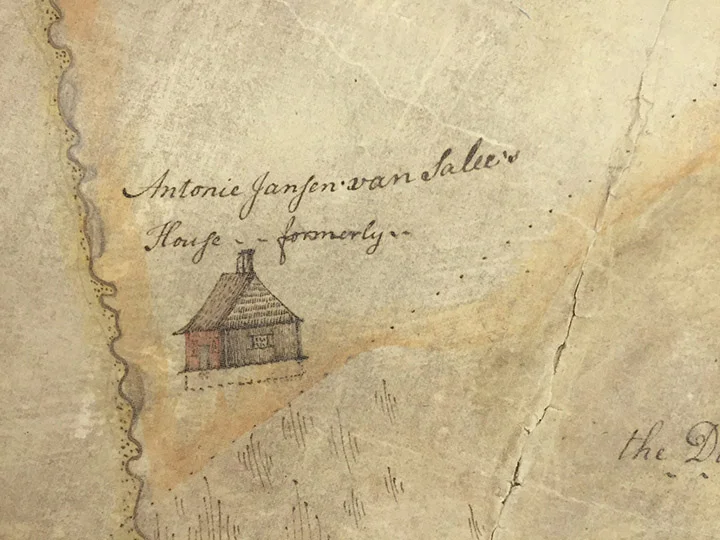 Antonie Jansen van Salee's
House - - formerly - -
the D